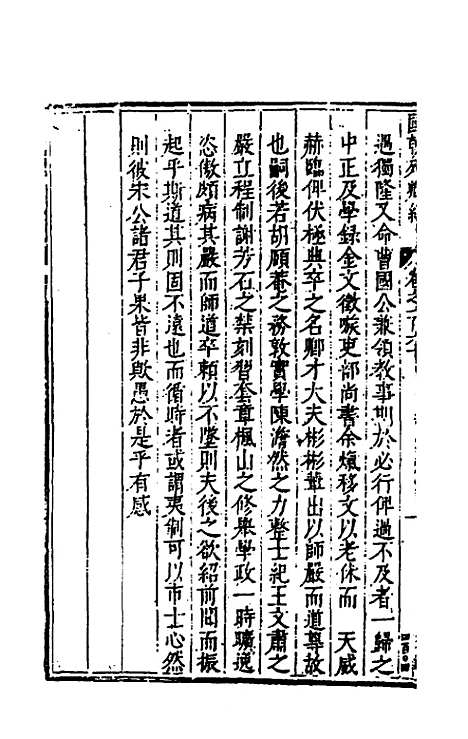 遇獨隆又命曹國公兼領教事期於必行俾過不及者一歸之
中正及學録金文徵嗾吏部尚書余熂移文以老休而　天威
赫臨俾伏極典卒之名卿才大夫彬彬輩出以師嚴而道尊故
也嗣後若胡頤菴之務敦實學陳澹然之力整士紀王文肅之
嚴立程制謝方石之禁刻習奎章楓山之修舉學政一時曠逸
恣傲頗病其嚴而師道卒頼以不墜則夫後之欲紹前聞而振
起乎斯道其則固不遠也而循時者或謂夷制可以市士心然
則彼宋公諸君子果皆非歟愚於是乎有感